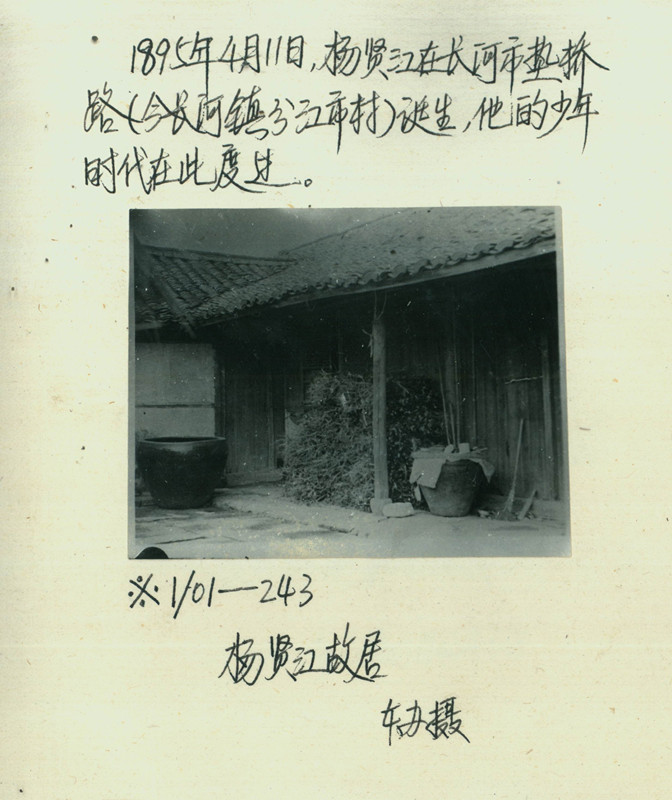 1895年4月11日,杨贤江在长河市垫桥
路(今长河镇分江市村)诞生,他的少年
时代在此度过。
※1/01—243
杨贤江故居
车办摄